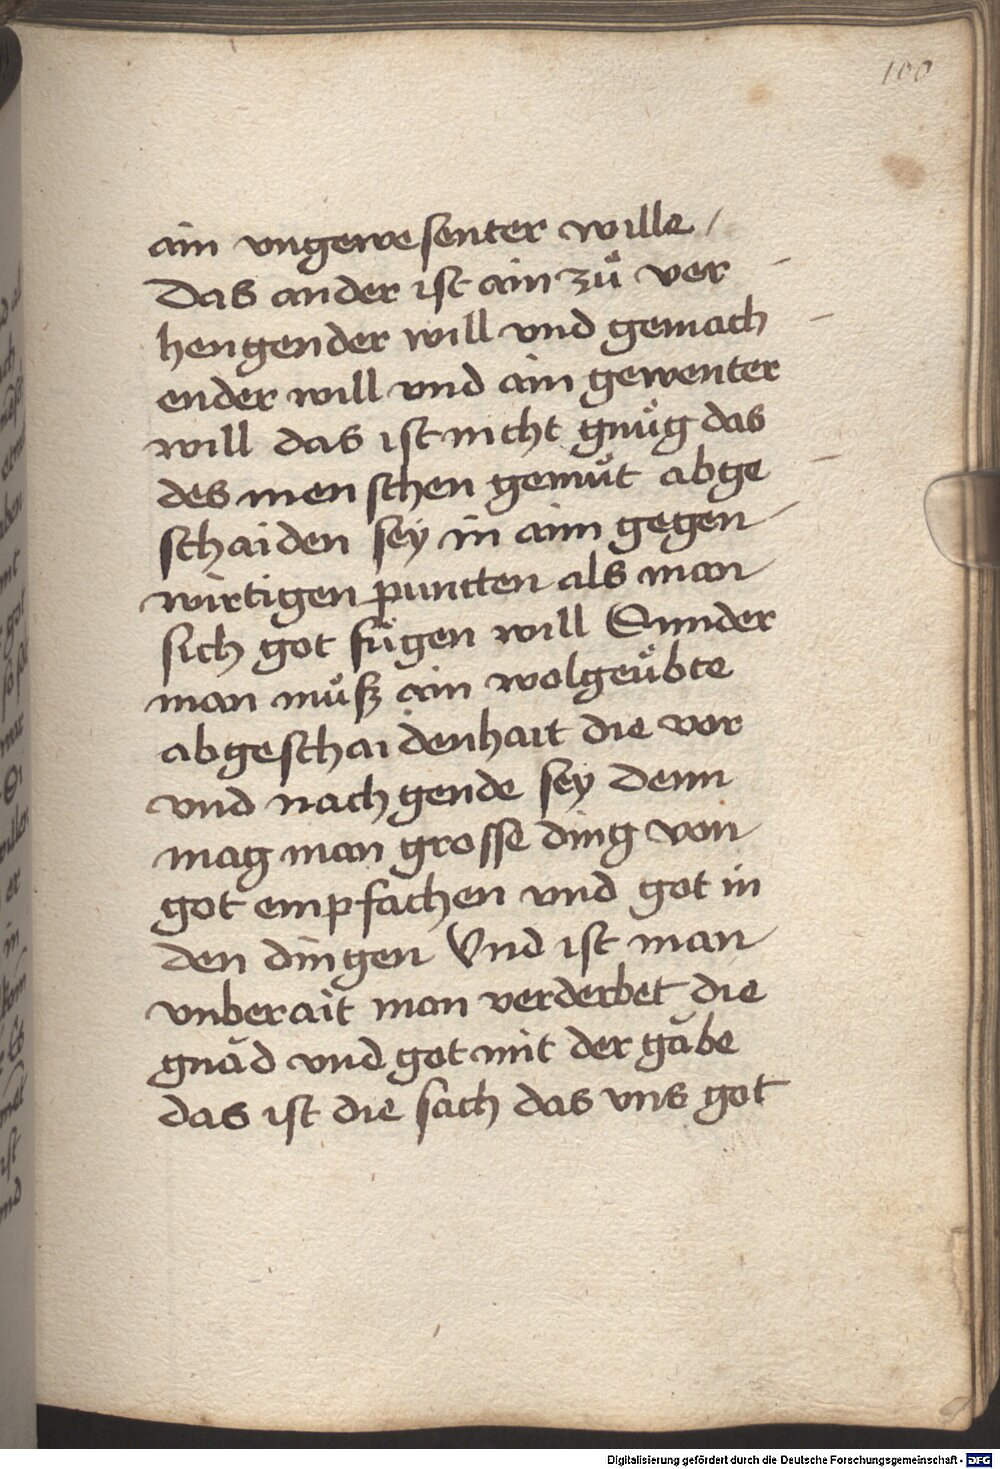 100
ain vngewesenter wille /
Das ander ist ain zuͦ ver
hengender will vnd gemach
ender will vnd ain gewenter
will das ist nicht gnuͦg das
des menschen gemuͤt abge
schaiden sey in aim gegen
wirtigen puncten als man
sich got fuͤgen will Sunder
man muͦsz ain wolgeuͤbte
abgeschaidenhait die vor
vnd nach gende sey Denn
mag man grosse ding von
got empfachen vnd got in
den dingen Vnd ist man
vnberait man verderbet die
gnăd vnd got mit der găbe
das ist die sach das vns got
Digitalisierung gefördert durch die Deutsche Forschungsgemeinschaft - DFG